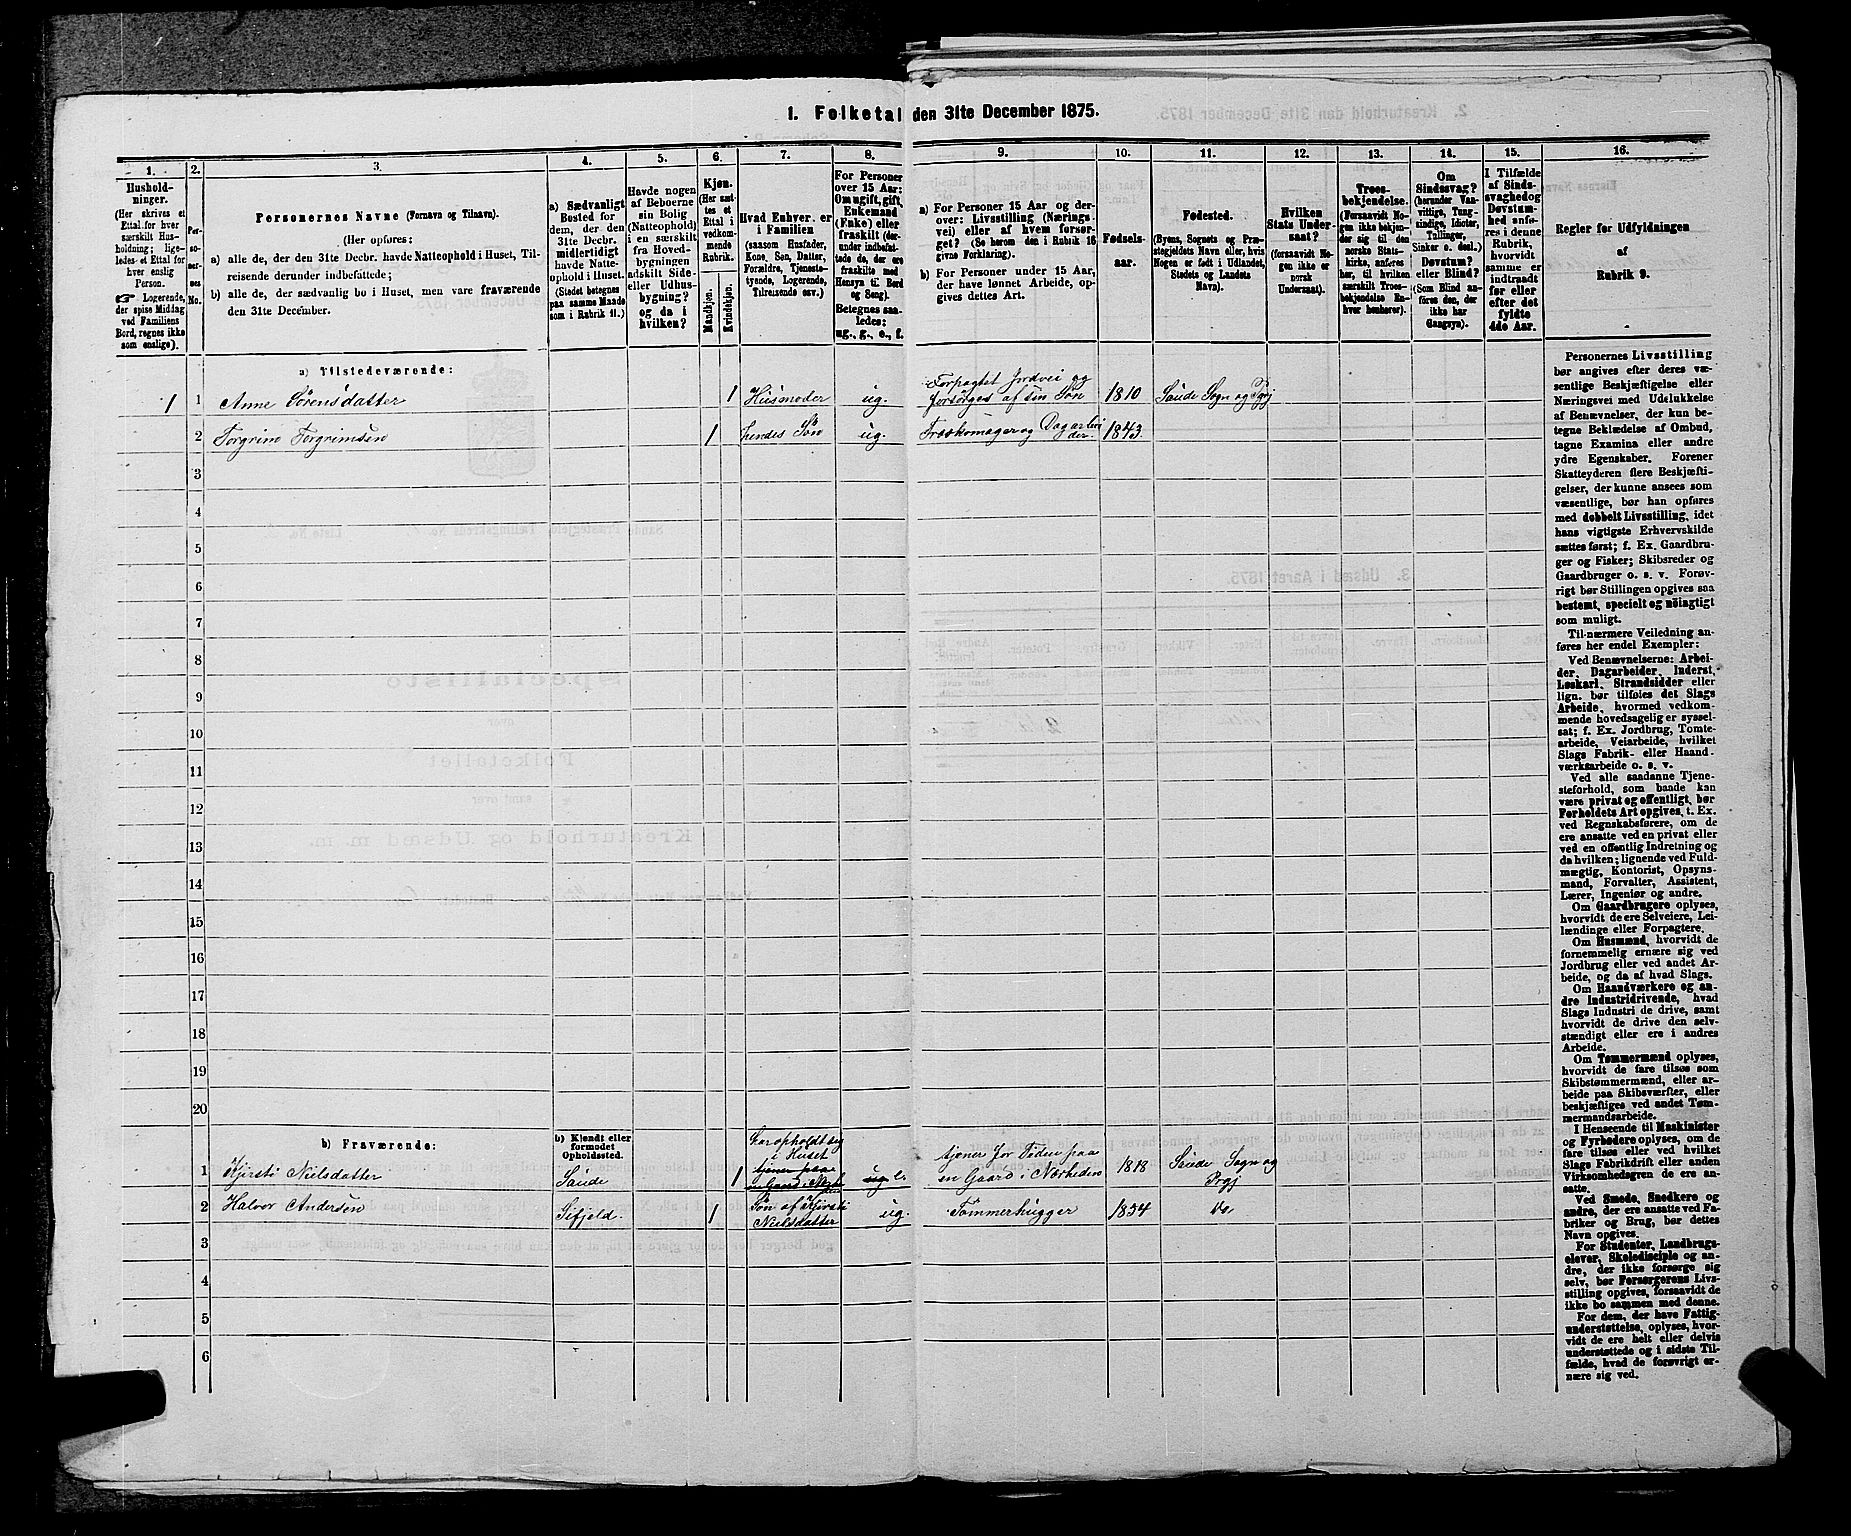 1. Folketal den 31te December 1875.
1.
2.
3.
4.
5.
6.
7.
8.
9.
10.
11.
12.
13.
14.
15.
16.
Hushold-
ninger.
(Her skrives et
Ettal for hver
særskilt Hus-
holdning; lige-
ledes et Ettal for
hver enslig
Person.
☞ Logerende,
der spise Middag
ved Familiens
Bord, regnes ikke
som enslige).
Per-
so-
ner-
nes
No.
Personernes Navne (Fornavn og Tilnavn).
(Her opføres:
a) alle de, der den 31te Decbr. havde Natteophold i Huset, Til-
reisende derunder indbefattede;
b) alle de, der sædvanlig bo i Huset, men vare fraværende
den 31te December.
a) Sædvanligt
Bosted for
dem, der den
31te Decbr.
midlertidigt
havde Natte-
ophold i Huset.
(Stedet betegnes
paa samme Maade
som i Rubrik 11.)
Havde nogen
af Beboerne
sin Bolig
(Natteophold)
i en særskilt
fra Hoved-
bygningen
adskilt Side-
eller Udhus-
bygning?
og da i
hvilken?
Kjøn.
(Her sæt-
tes et
Ettal i
vedkom-
mende
Rubrik.
Mandkjøn.
Kvindekjøn.
Hvad Enhver er
i Familien
(saasom Husfader,
Kone, Søn, Datter,
Forældre, Tjeneste-
tyende, Logerende,
Tilreisende osv.)
For Personer
over 15 Aar:
Om ugift, gift,
Enkemand
(Enke) eller
fraskilt (der-
under indbefat-
tede de, der ere
fraskilte med
Hensyn til Bord
og Seng).
Betegnes saa-
ledes:
ug., g., e., f.
a) For Personer 15 Aar og der-
over: Livsstilling (Nærings-
vei) eller af hvem forsør-
get? (Se herom den i Rubrik 16
givne Forklaring).
b) For Personer under 15 Aar,
der have lønnet Arbeide, op-
gives dettes Art.
Fødsels-
aar.
Fødested.
(Byens, Sognets og Præ-
stegjeldets Navn eller, hvis
Nogen er født i Udlandet,
Stedets og Landets
Navn).
Hvilken
Stats Under-
saat?
(forsaavidt No-
gen ikke er
norsk
Undersaat).
Troes-
bekjendelse.
(Forsaavidt No-
gen ikke bekjen-
der sig til den
norske Stats-
kirke, anføres
her, til hvilken
særskilt Troes-
bekjendelse En-
hver henhører).
Om
Sindssvag?
(herunder Van-
vittige, Tung-
sindige, Idioter,
Tullinger,
Sinker o. desl.)
Døvstum?
eller Blind?
(Som Blind an-
føres den, der
ikke har
Gangsyn).
I Tilfælde
af Sinds-
svaghed og
Døvstum-
hed anfø-
res i denne
Rubrik,
hvorvidt
samme er
indtraadt
før eller
efter det
fyldte
4de Aar.
Regler for Udfyldningen
af
Rubrik 9.
a) Tilstedeværende:
1 1 Anne Sørensdatter 1 Husmoder ug. Forpagtet Jordvei og
forsørges af sin Søn 1810 Saude Sogn og Prgj
2 Torgrim Torgrimsen 1 hendes Søn ug. Træskomager og Dagarbei
der. 1843.
3
4
5
6
7
8
9
10
11
12
13
14
15
16
17
18
19
20
b) Fraværende:
b) Kjendt eller
formodet
Opholdssted.
1 Kjersti Nielsdatter Saude 1 tjener paa ug e. tjener for Tiden paa
en Gaard i Nærheden 1818 Saude Sogn og
Prgj
2 Halvor Andersen Sifjeld. 1 Søn af Kirsti
Nielsdatter ug. Tømmerhugger 1854 do
3
4
5
6
Personernes Livsstilling
bør angives efter deres væ-
sentlige Beskjæftigelse eller
Næringsvei med Udelukkelse
af Benævnelser, der kun be-
tegne Beklædelse af Ombud,
tagne Examina eller andre
ydre Egenskaber. Forener
Skatteyderen flere Beskjæfti-
gelser, der kunne ansees som
væsentlige, bør han opføres
med dobbelt Livsstilling, idet
hans vigtigste Erhvervskilde
sættes først; f. Ex. Gaardbru-
ger og Fisker; Skibsreder og
Gaardbruger o. s. v. Forøv-
rigt bør Stillingen opgives saa
bestemt, specielt og nöiagtigt
som muligt.
Til nærmere Veiledning an-
føres her endel Exempler:
Ved Benævnelserne: Arbei-
der, Dagarbeider, Inderst,
Løskarl, Strandsidder eller
lign. bør tilføies det Slags
Arbeide, hvormed vedkom-
mende hovedsagelig er syssel-
sat; f. Ex. Jordbrug, Tomte-
arbeide, Veiarbeide, hvilket
Slags Fabrik- eller Haand-
værksarbeide o. s. v.
Ved alle saadanne Tjene-
steforhold, som baade kan
være privat og offentligt, bør
Forholdets Art opgives, t. Ex.
ved Regnskabsførere, om de
ere ansatte ved en privat eller
ved en offentlig Indretning og
da hvilken; lignende ved Fuld-
mægtig, Kontorist, Opsyns-
mand, Forvalter, Assistent,
Lærer, Ingeniør og andre.
Om Gaardbrugere oplyses,
hvorvidt de ere Selveiere, Lei-
lændinge eller Forpagtere.
Om Husmænd, hvorvidt de
fornemmelig ernære sig ved
Jordbrug eller ved andet Ar-
beide, og da af hvad Slags.
Om Haandværkere og an-
dre Industridrivende, hvad
Slags Industri de drive, samt
hvorvidt de drive den selv-
stændigt eller ere i andres
Arbeide.
Om Tømmermænd oplyses,
hvorvidt de fare tilsøs som
Skibstømmermænd, eller ar-
beide paa Skibsværfter, eller
beskjæftiges ved andet Tøm-
mermandsarbeide.
I Henseende til Maskinister
og Fyrbødere oplyses, om de
fare tilsøs eller ved hvilket
Slags Fabrikdrift eller anden
Virksomhed de ere an-
satte.
Ved Smede, Snedkere og
andre, der ere ansatte ved Fa-
briker og Brug, bør dettes
Navn opgives.
For Studenter, Landbrugs-
elever, Skoledisciple og an-
dre, der ikke forsørge sig
selv, bør Forsørgerens Livs-
stilling opgives, forsaavidt de
ikke bo sammen med denne.
For dem, der have Fattig-
understøttelse, oplyses, hvor-
vidt de ere helt eller delvis
understøttede og i sidste Til-
fælde, hvad de forøvrigt er-
nære sig ved.